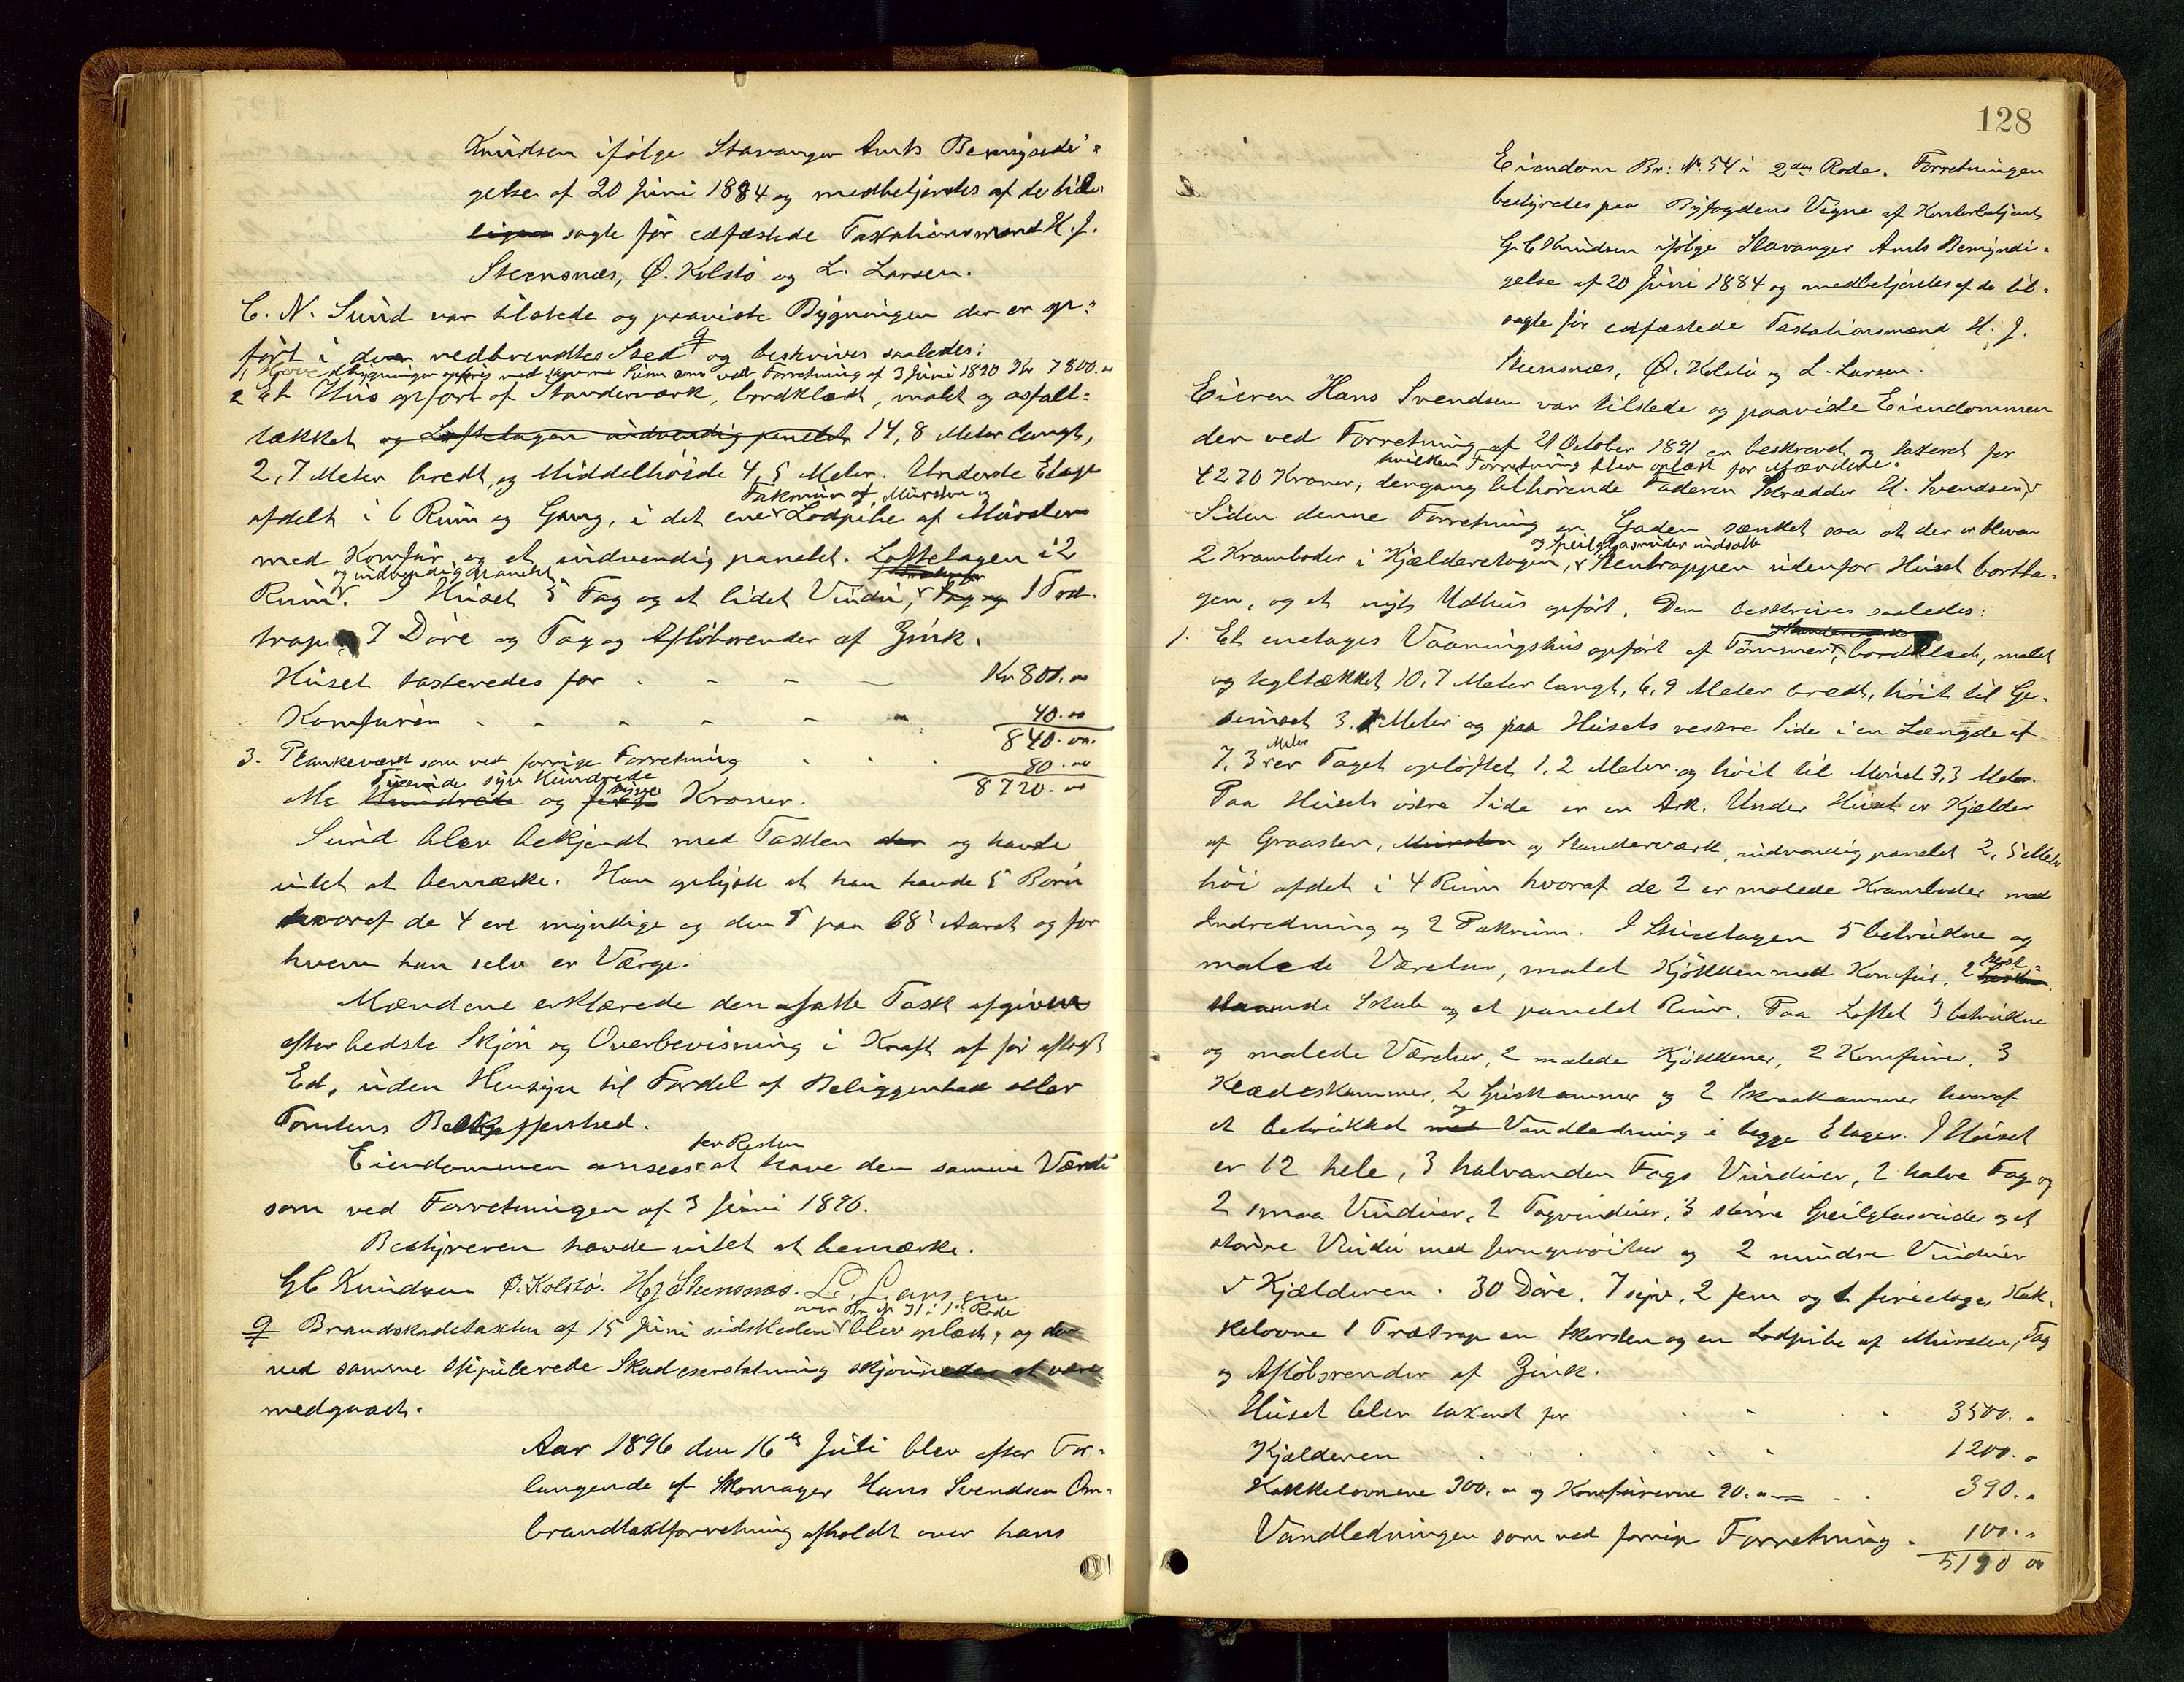 Knudsen ifølge Stavanger Amts Bemyndi-
gelse af 20 Juni 1884 og medbetjentes af de tidli-
ligen sagte før edfæstede Taxationsmænd H. J.
Steensnæs, Ø. Kolstö og L. Larsen.
C. N. Sund var tilstede og paaviste Bygningen der er op-
ført i den nedbrendtes Sted og beskrives saaledes:
1, Hovedbygningen med samme Sum som ved Forretning af 3 Juni 1890 Kr 7800.00
2 Et Hus opført af Standerværk, bordklædt, malet og asfalt-
tækket og Loftetagen indvendig panelet 14,8 Meter langt,
2,7 Meter bredt, og Middelhøide 4,5 Meter. Underste Etage
Takmur af Mursten og
afdelt i 6 Rum og Gang, i det ene Lodpibe af Mursten
med Komfur og et indvendig panelet. Loftetagen i 2
og indvendig panelet
Rum. I Huset 5 Fag og et lidet Vindu, Fag og 1 Træ-
trap, 7 Döre og Tag og Aflöbsrender af Zink.
Huset taxteredes for Kr 800.00
Komfuren 40.00
840.00
3. Plankeværk som ved forrige Forretning 80.00
Tusinde syv Hundrede tyve
8720.00
og Kroner.
Sund blev bekjendt med Taxten der og havde
intet at bemærke. Han oplyste at han havde 5 Börn
hvoraf de 4 ere myndige og den 5 paa 18 Aaret og for
hvem han selv er Værge.
Mændene erklærede den afsatte Taxt afgiven
efter bedste Skjön og Overbevisning i Kraft af för aflagt
Ed, uden Hensyn til Fordel af Beliggenhed eller
Tomtens Beskaffenhed.
for Resten
Eiendommen ansees at have den samme Værdi
som ved Forretningen af 3 Juni 1890.
Bestyreren havde intet at bemærke.
G C Knudsen Ø. Kolstö. H J Steensnæs. L. Larsen
over Br. № 31 i 1ste Rode
Brandskadetaxten af 15 Juni sidstleden blev oplæst, og den
ved samme stipulerede Skadeserstatning skjönnedes at være
medgaaet.
Aar 1896 den 16de Juli blev efter For-
langende af Skomager Hans Svendsen Om-
brandtaxtforretning afholdt over hans
128
Eiendom Br: № 54 i 2den Rode. Forretningen
bestyredes paa Byfogdens Vegne af Kontorbetjent
G. C Knudsen ifølge Stavanger Amts Bemyndi-
gelse af 20 Juni 1884 og medbetjentes af de til-
sagte för edfæstede Taxationsmænd H. J.
Steensnæs, Ø. Kolstö og L. Larsen.
Eieren Hans Svendsen var tilstede og paaviste Eiendommen
der ved Forretning af 21 October 1891 er beskrevet og taxeret for
hvilken Forretning blev oplæst for Mændene.
4270 Kroner, dengang tilhørende Faderen Skrædder H. Svendsen,
Siden denne Forretning er Gaden sænket saa at der er bleven
og Speilglasruder indsatte
2 Kramboder i Kjælderetagen, Stentrappen udenfor Huset bortta-
gen, og et nyt Udhus opført. Den beskrives saaledes:
Standerværk
1. Et enetages Vaaningshus opført af Tömmer, bordklædt, malet
og tegltækket 10,7 Meter langt, 6,9 Meter bredt, höit til Ge-
simset 3. Meter og paa Husets vestre Side i en Længde af
Meter
7,3 er Taget opløftet 1,2 Meter og höit til Mönet 3,3 Meter.
Paa Husets östre Side er en Ark. Under Huset er Kjælder
af Graasten, Mursten og Standerværk, indvendig panelet 2,5 Meter
höi afdelt i 4 Rum hvoraf de 2 er malede Kramboder med
Indredning og 2 Pakrum. I Stuetagen 5 betrukne og
malede Værelser, malet Kjökken med Komfur, 2
staaende Skab og et panelet Rum. Paa Loftet 3 betrukne
og malede Værelser, 2 malede Kjökkener, 2 Komfurer, 3
Klædeskammer, 2 Spiskammer og 2 Skraakammer hvoraf
og
et betrukket med Vandledning i begge Etager. I Huset
er 12 hele, 3 halvanden Fags Vinduer, 2 halve Fag og
2 smaa Vinduer, 2 Tagvinduer, 3 större Speilglasruder og et
större Vindu med og 2 mindre Vinduer
i Kjælderen. 30 Döre, 7 syv, 2 fem og 1 fireetages Kak-
kelovne 1 Trætrap en Skorsten og en Lodpibe af Mursten, Tag
og Aflöbsrender af Zink.
Huset blev taxeret for 3500. "
Kjælderen 1200. "
Kakkelovnene 300. " og Komfurerne 90. " 390. "
Vandledningen som ved forrige Forretning. 100. "
5190 00